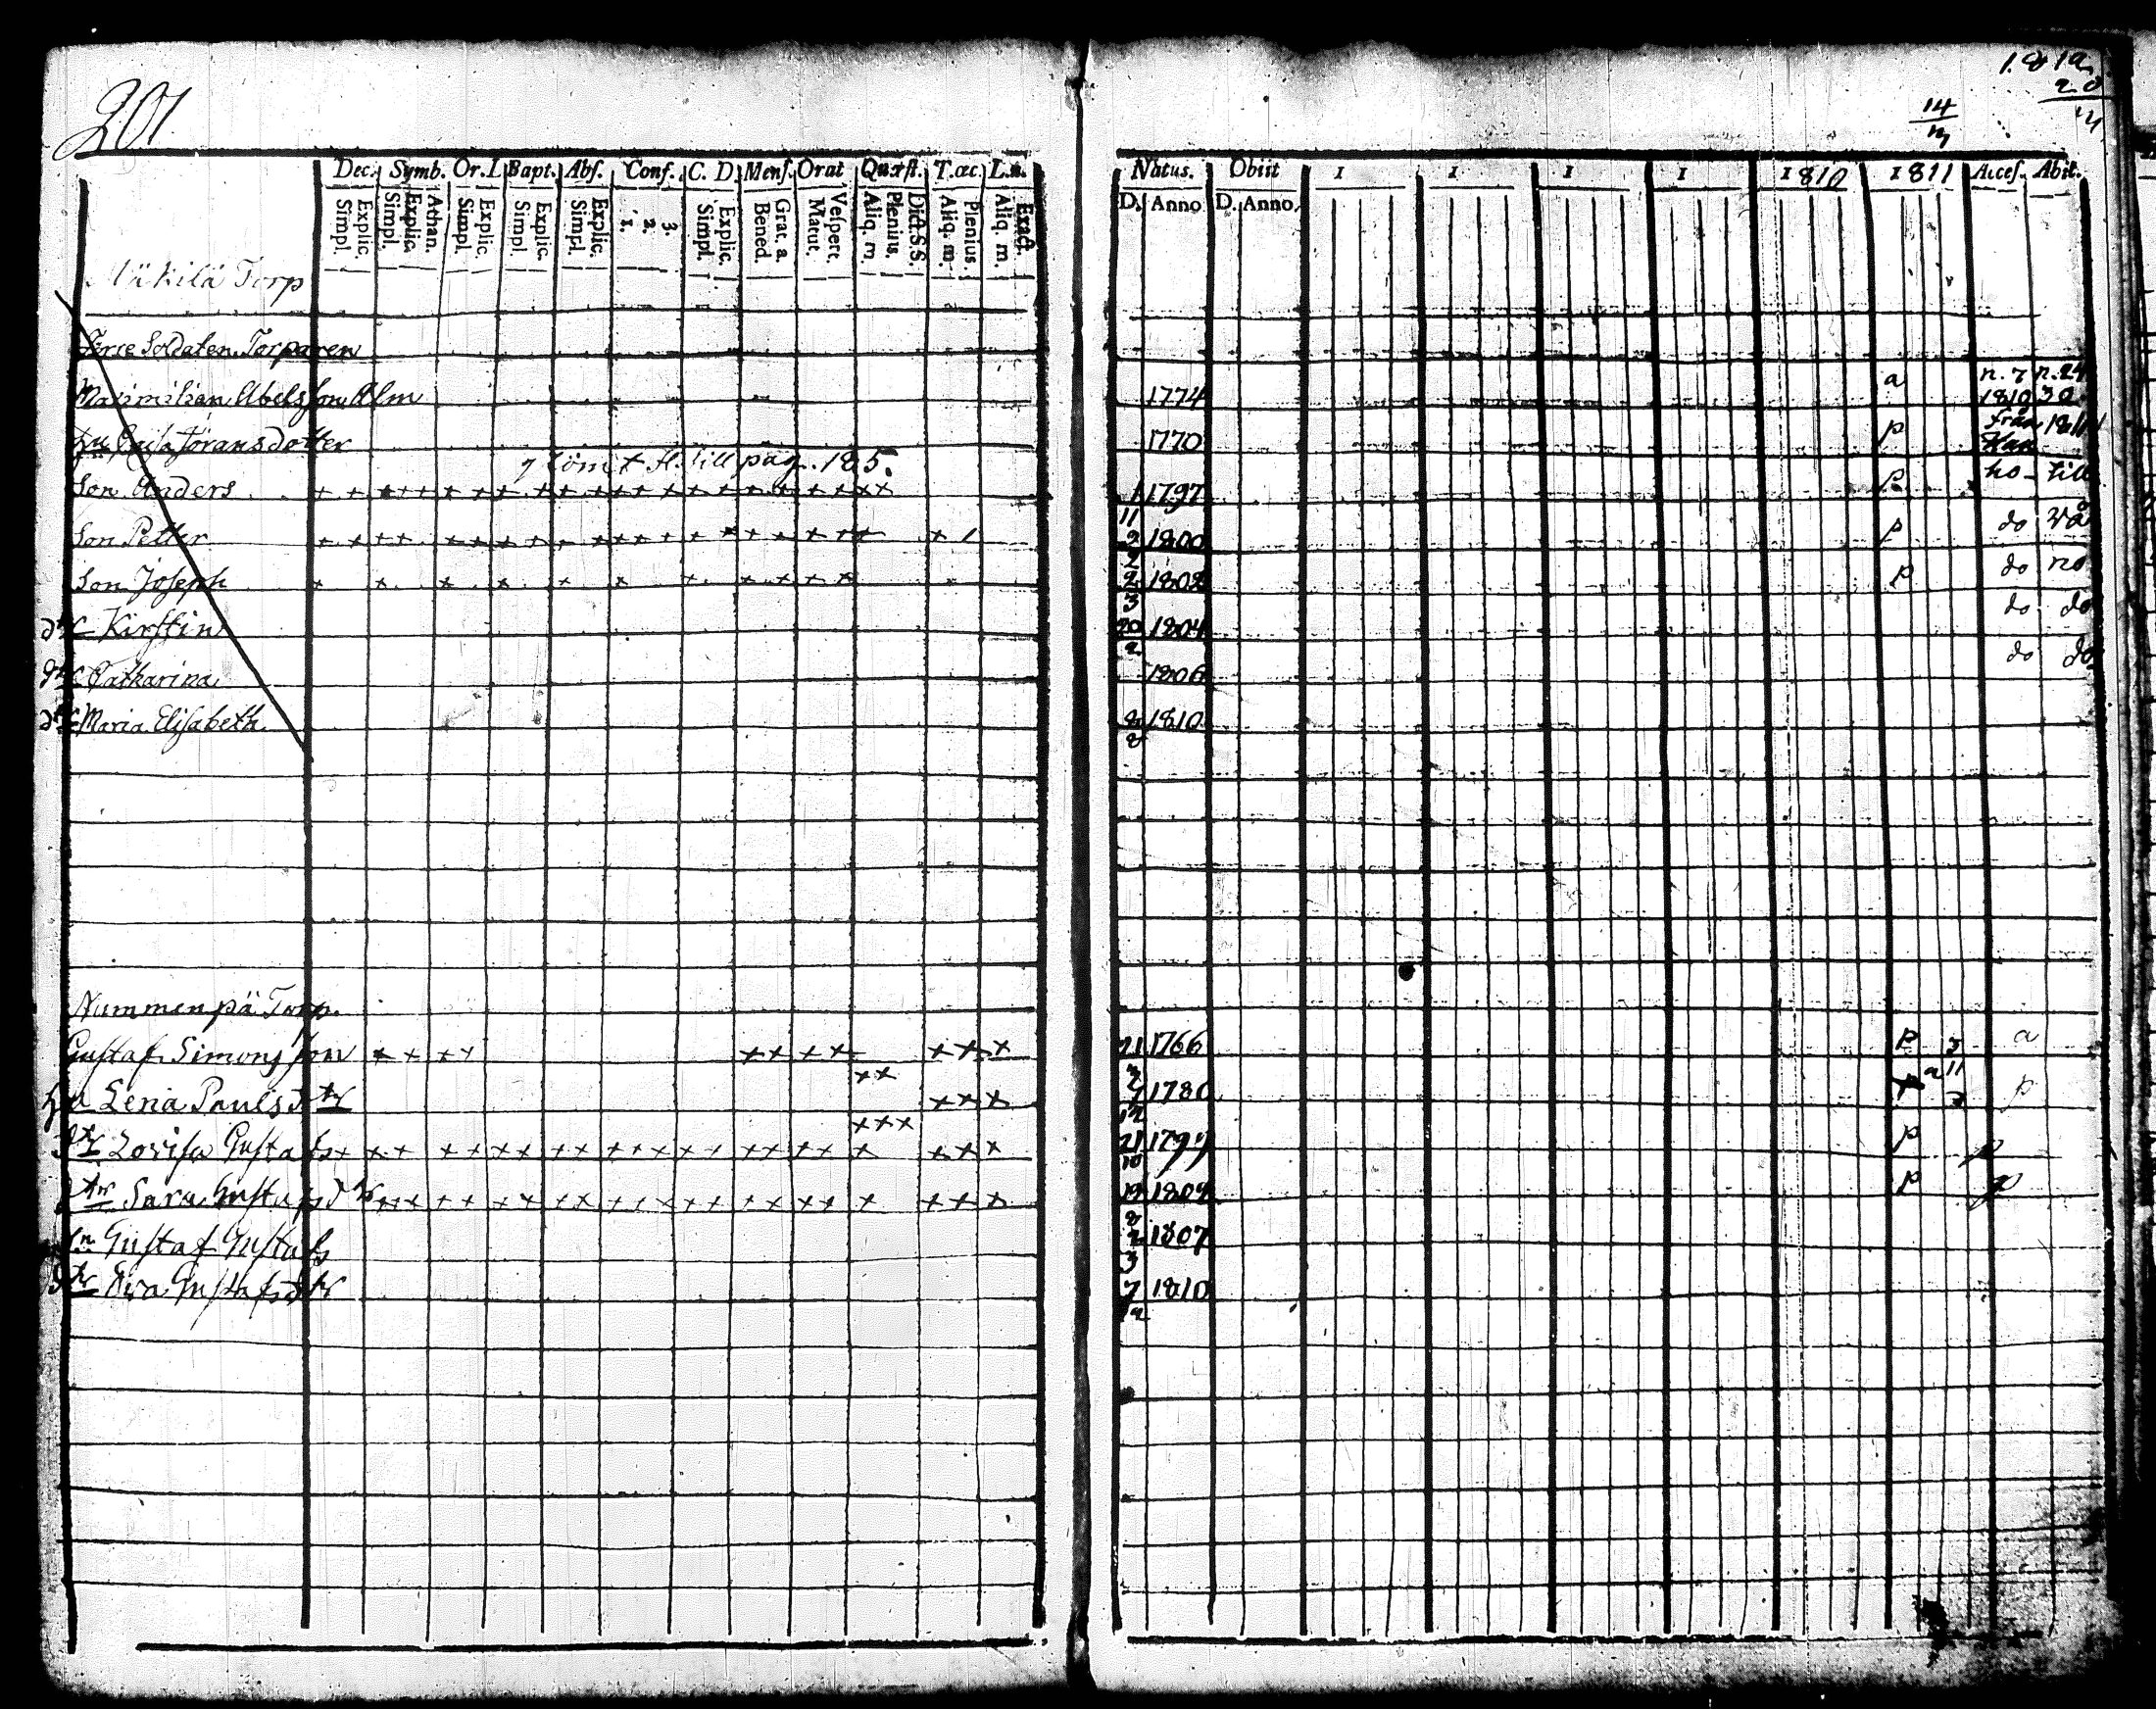 201
14
Dec. Symb. Or. D. Bapt. Abs. Conf. C. D. Mens. Orat Quæst. T. œc. L. n.
Natus. Obiit 1 1 1 1 1810 1811 Acces. Abit.
Explic. Simpl. Athan. Explic. Simpl. Explic. Simpl. Explic. Simpl. Explic. Simpl. 3. 2. 1. Explic. Simpl. Grat. a. Bened. Vespert. Matut. Dict. S. S. Plenius. Aliq. m. Plenius. Aliq. m. Exact. Aliq. m.
D. Anno D. Anno
Mäkilä Torp
Förre Soldaten Torparen
Maximilian Abelsson Alm 1774 a n. 7 n. 24 1810 30
hu Caisa Göransdotter 1770 p från 1811
till pag. 185.
Son Anders 1 11 1797 p do till
Son Petter 2 2 1800 p do
Son Joseph 2 3 1802 p do
dtr Kirstin 20 2 1804 do do
dtr Catharina 1806 do do
dtr Maria Elisabeth 8 8 1810
Nummenpä Torp
Gustaf Simonsson 21 1766 p a
hu Lena Paulsdtr 1780 p p
dtr Lovisa Gustafs 21 10 p p
dtr Sara Gustafsdtr 19 p p
sn Gustaf Gustafs 2 3 1807
dtr Eva Gustafsdtr 7 1810